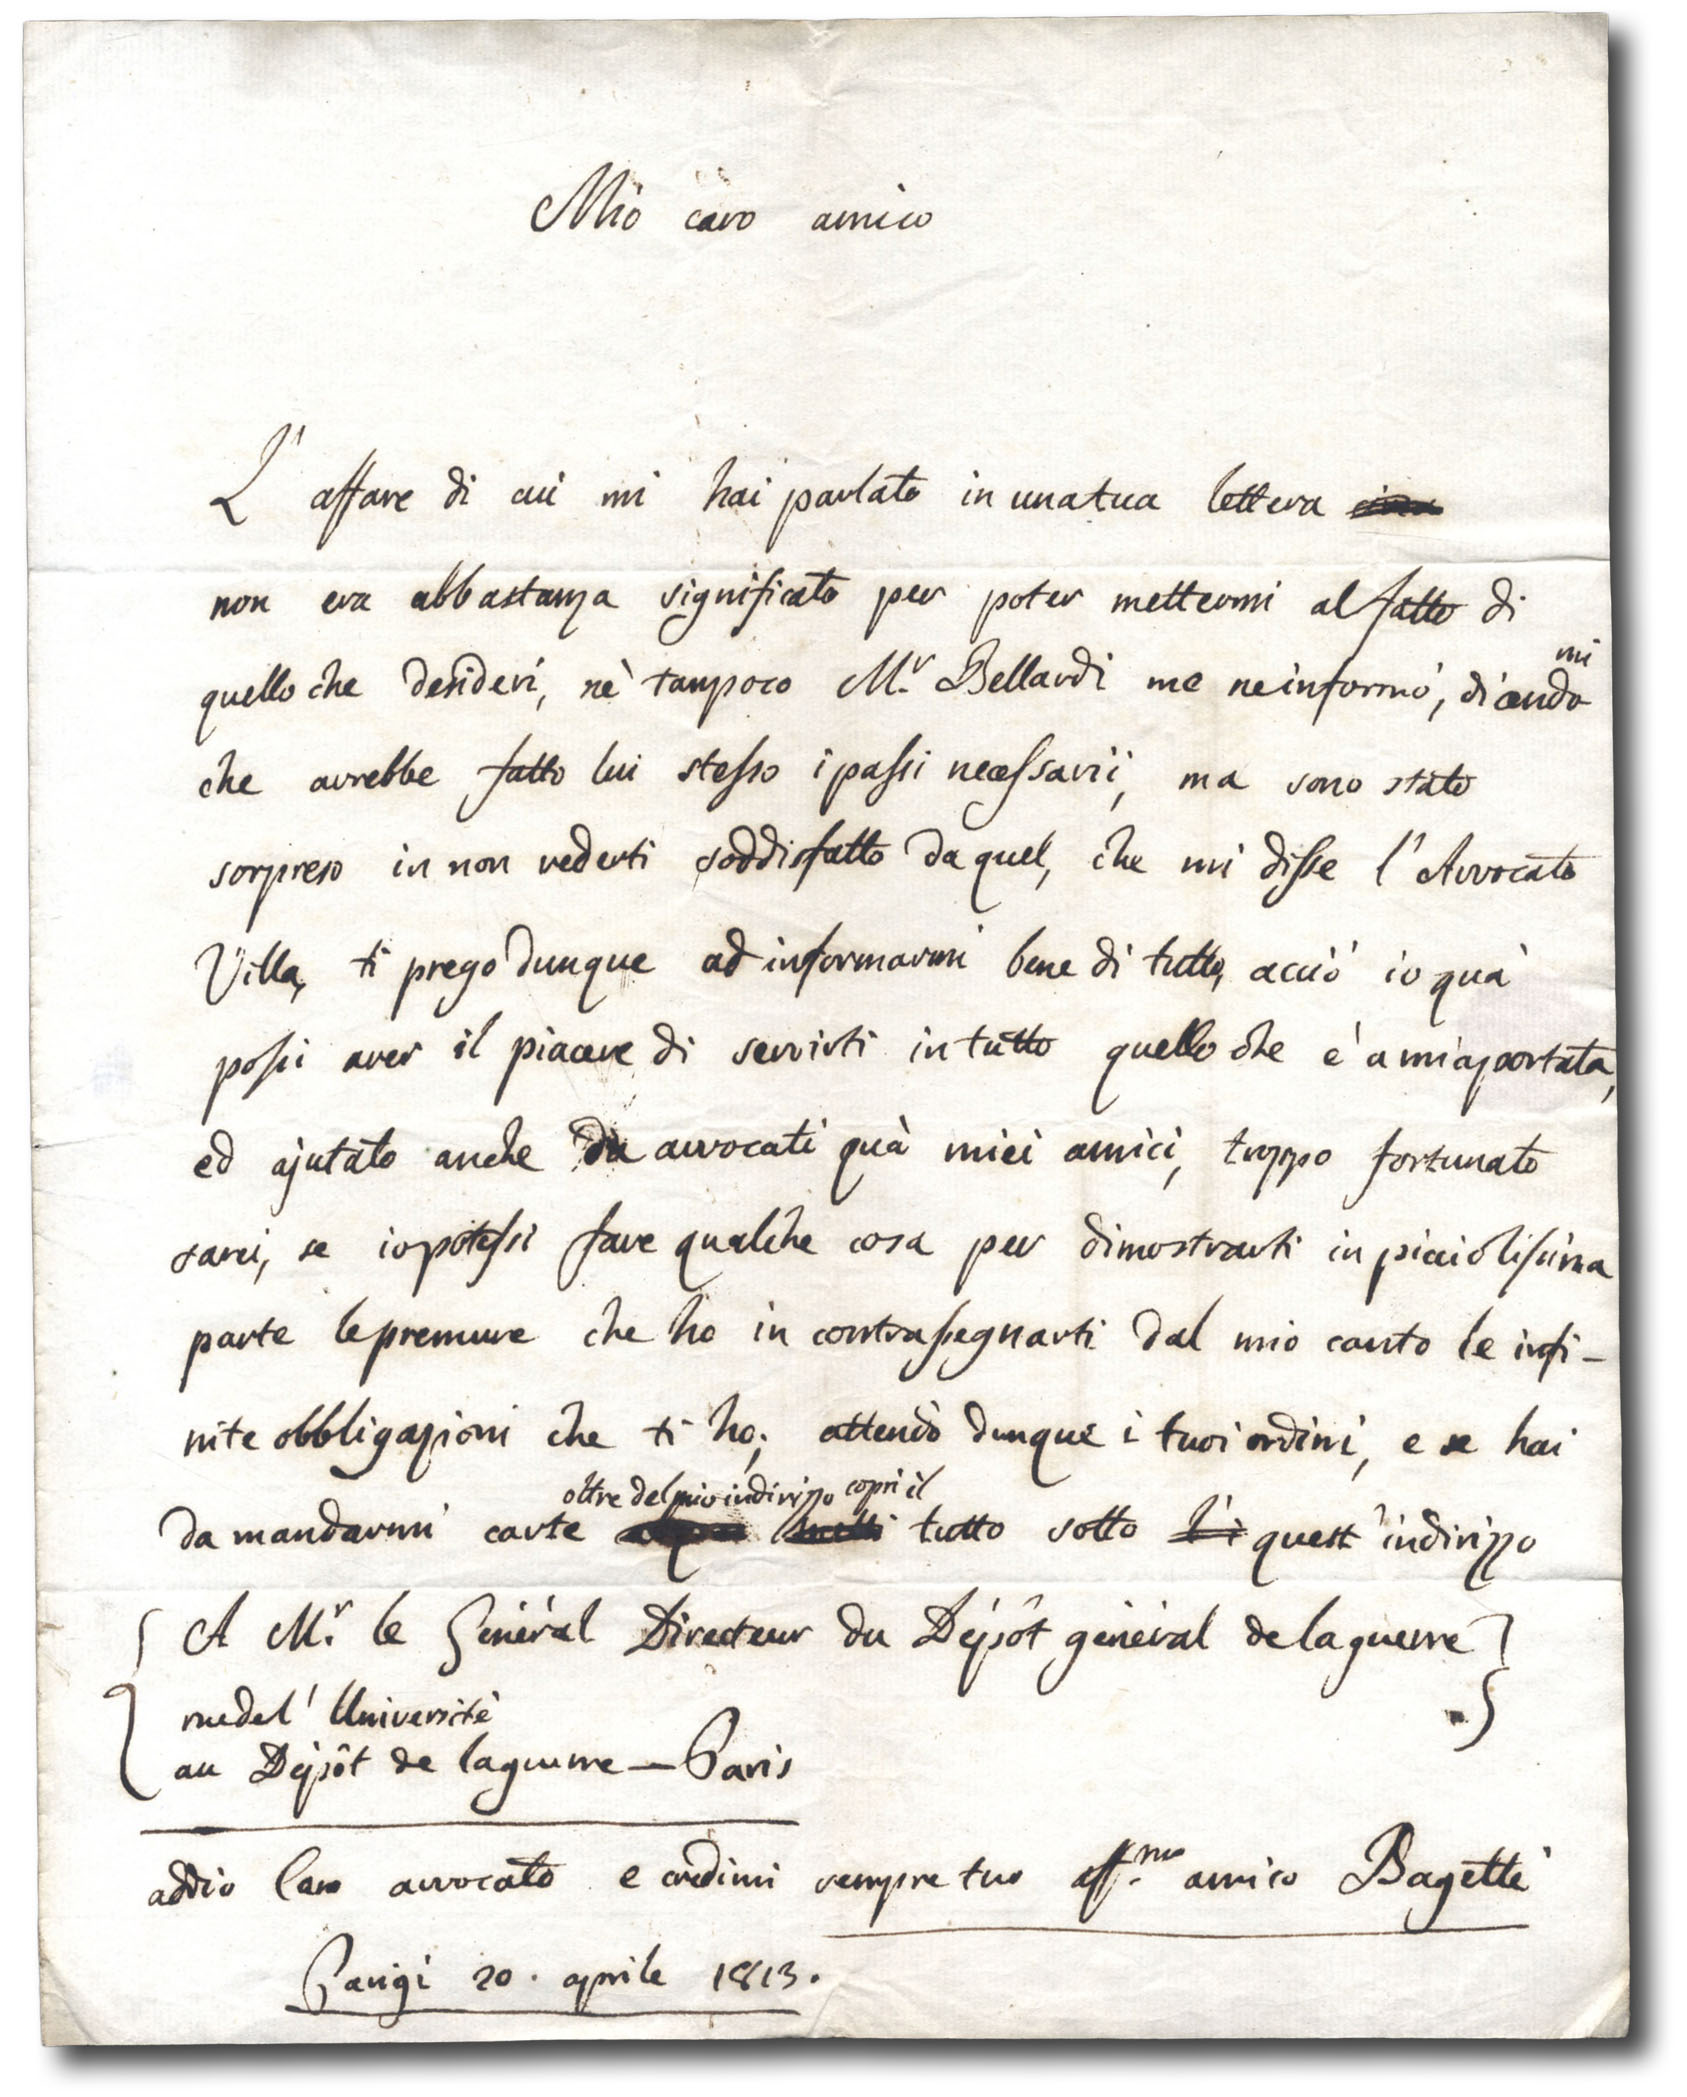 Mio caro amico
L' affare di cui mi hai parlato in una tua lettera
non era abbastanza significato per poter mettermi al fatto di
mi
quello che desideri, nè tampoco M.r Bellardi me ne informò, dicendo
che avrebbe fatto lui stesso i passi necessarii, ma sono stato
sorpreso in non vederti soddisfatto da quel, che mi disse l'Avvocato
Villa, ti prego dunque ad informarmi bene di tutto, acciò io quà
possi aver il piacere di servirti in tutto quello che è a mia portata,
ed ajutato anche da avvocati quà miei amici, troppo fortunato
sarei, se io potessi fare qualche cosa per dimostrarti in picciolissima
parte le premure che ho in contrasegnarti dal mio canto le infi-
nite obbligazioni che ti ho; attendo dunque i tuoi ordini, e se hai
oltre del mio indirizzo copri il
da mandarmi carte tutto sotto quest'indirizzo
A M.r le Général Directeur du Dépôt général de la guerre
rue de l'Université
au Dépôt de la guerre — Paris
addio Caro avvocato e credimi sempre tuo aff.mo amico Bagetti
Parigi 20. aprile 1813.